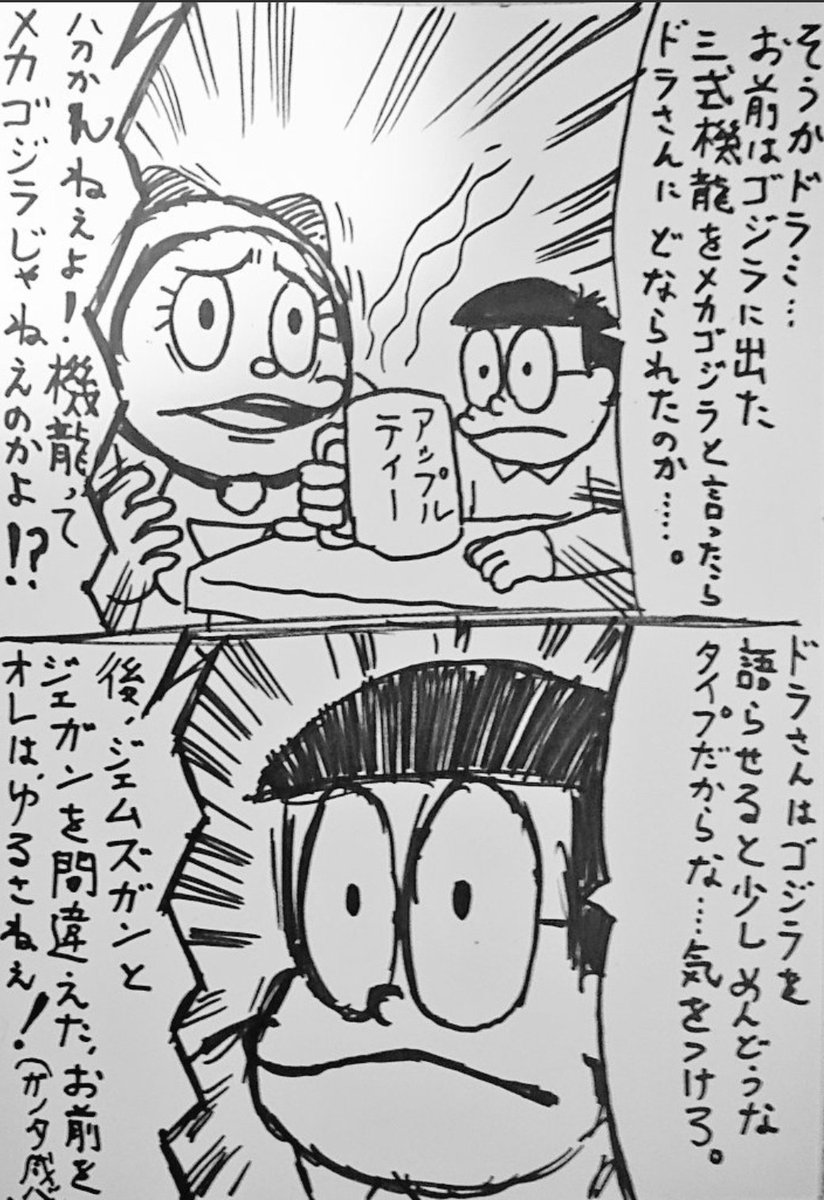 そうかドラミ…
お前はゴジラに出た
三式機龍をメカゴジラと言ったら
ドラさんにどなられたのか……。
アップル
ティー
分かんねぇよ!機龍って
メカゴジラじゃねえのかよ!?
ドラさんはゴジラを
語らせると少しめんどうな
タイプだからな…気をつけろ。
後、ジェムズガンと
ジェガンを間違えた、お前を
オレは、ゆるさねぇ!(ガノタ感